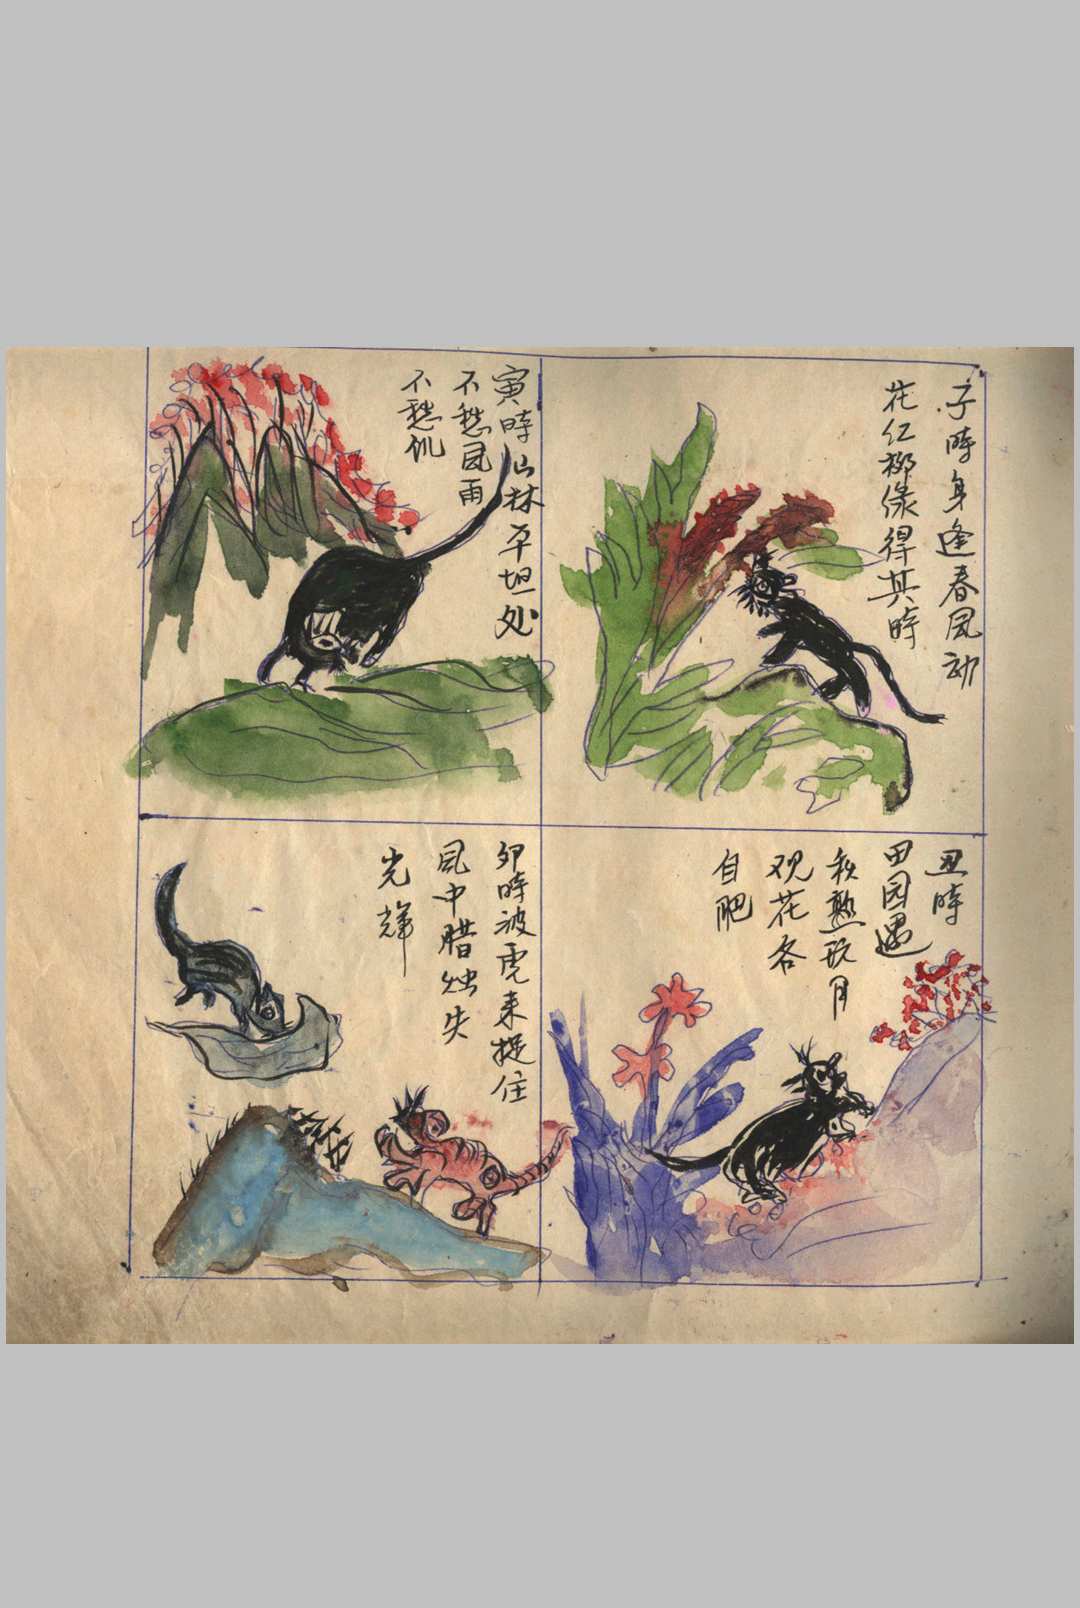 子時身逢春风动
花红柳绿得其時
丑時
田园遇
秋熟玩月
观花各
自肥
寅時山林平坦处
不愁风雨
不愁饥
卯時被虎来捉住
风中腊烛失
光辉